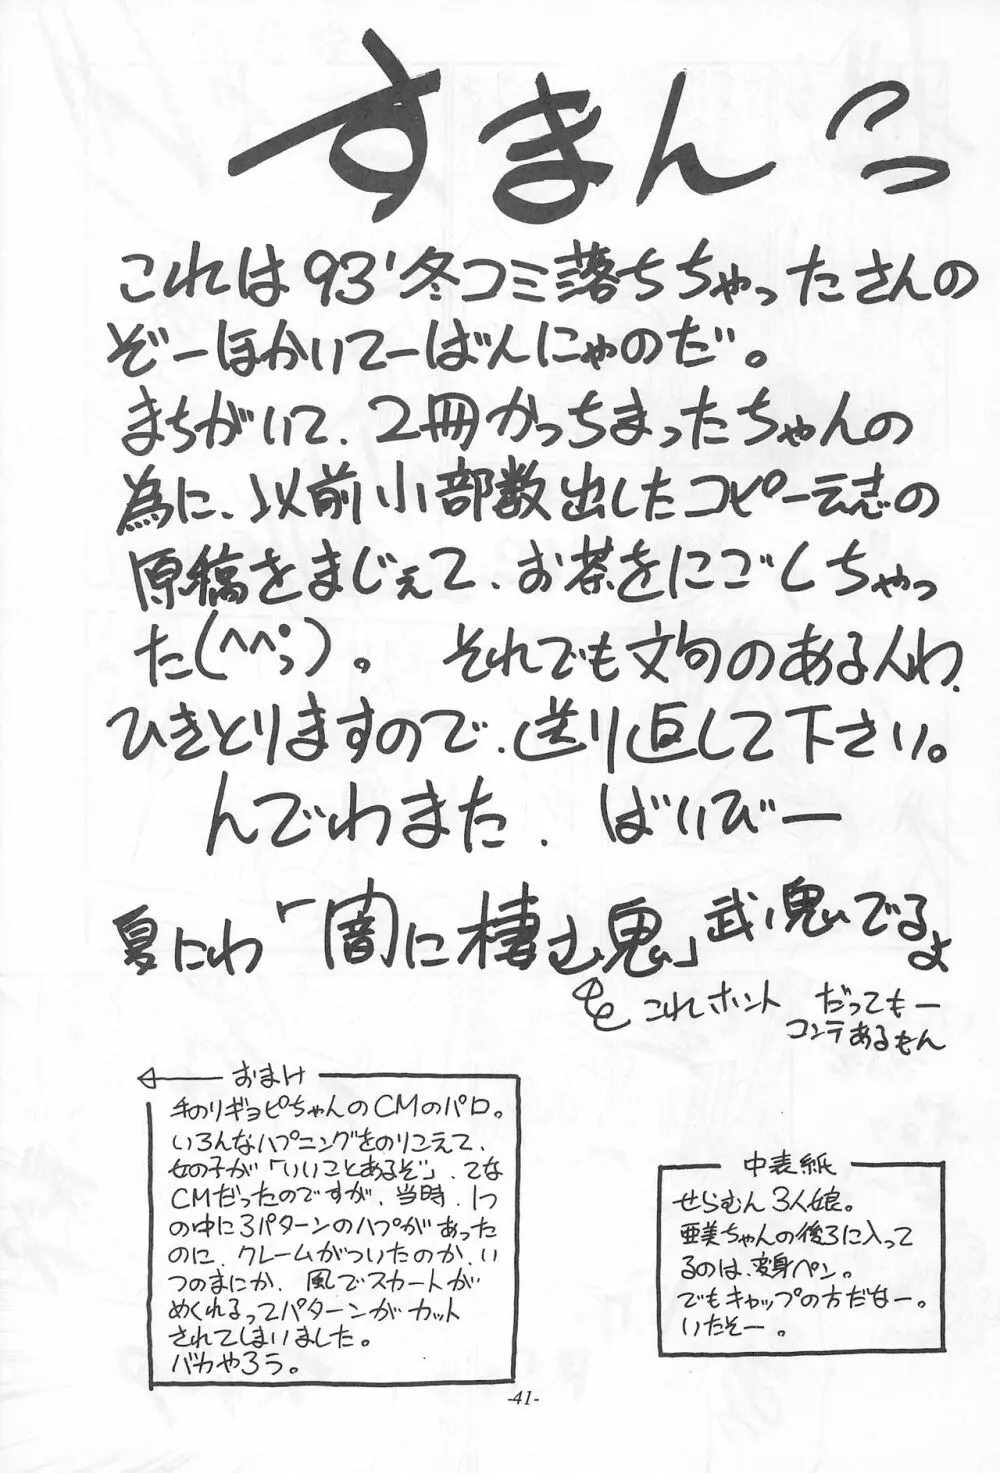 すまんっ
これは93'冬コミ落ちちゃったさんの
ぞーほかいてーばんにゃのだ。
まちがいて、2冊かっちまったちゃんの
為に、以前小部数出したコピー誌の
原稿をまじぇて、お茶をにごしちゃっ
た(^^;)。 それでも文句のある人わ、
ひきとりますので、送り返して下さい。
んでわまた、 ばいびー
夏にわ「闇に棲む鬼」武鬼でるよ
これホント だってもー
コンテあるもん
おまけ
手のりギョピちゃんのCMのパロ。
いろんなハプニングをのりこえて、
女の子が「いいことあるぞ」、てな
CMだったのですが、当時、1つ
の中に3パターンのハプがあった
のに、クレームがついたのか、い
つのまにか、風でスカートが
めくれるってパターンがカット
されてしまいました。
バカやろう。
中表紙
せらむん3人娘。
亜美ちゃんの後ろに入って
るのは、変身ペン。
でもキャップの方だなー。
いたそー。
-41-